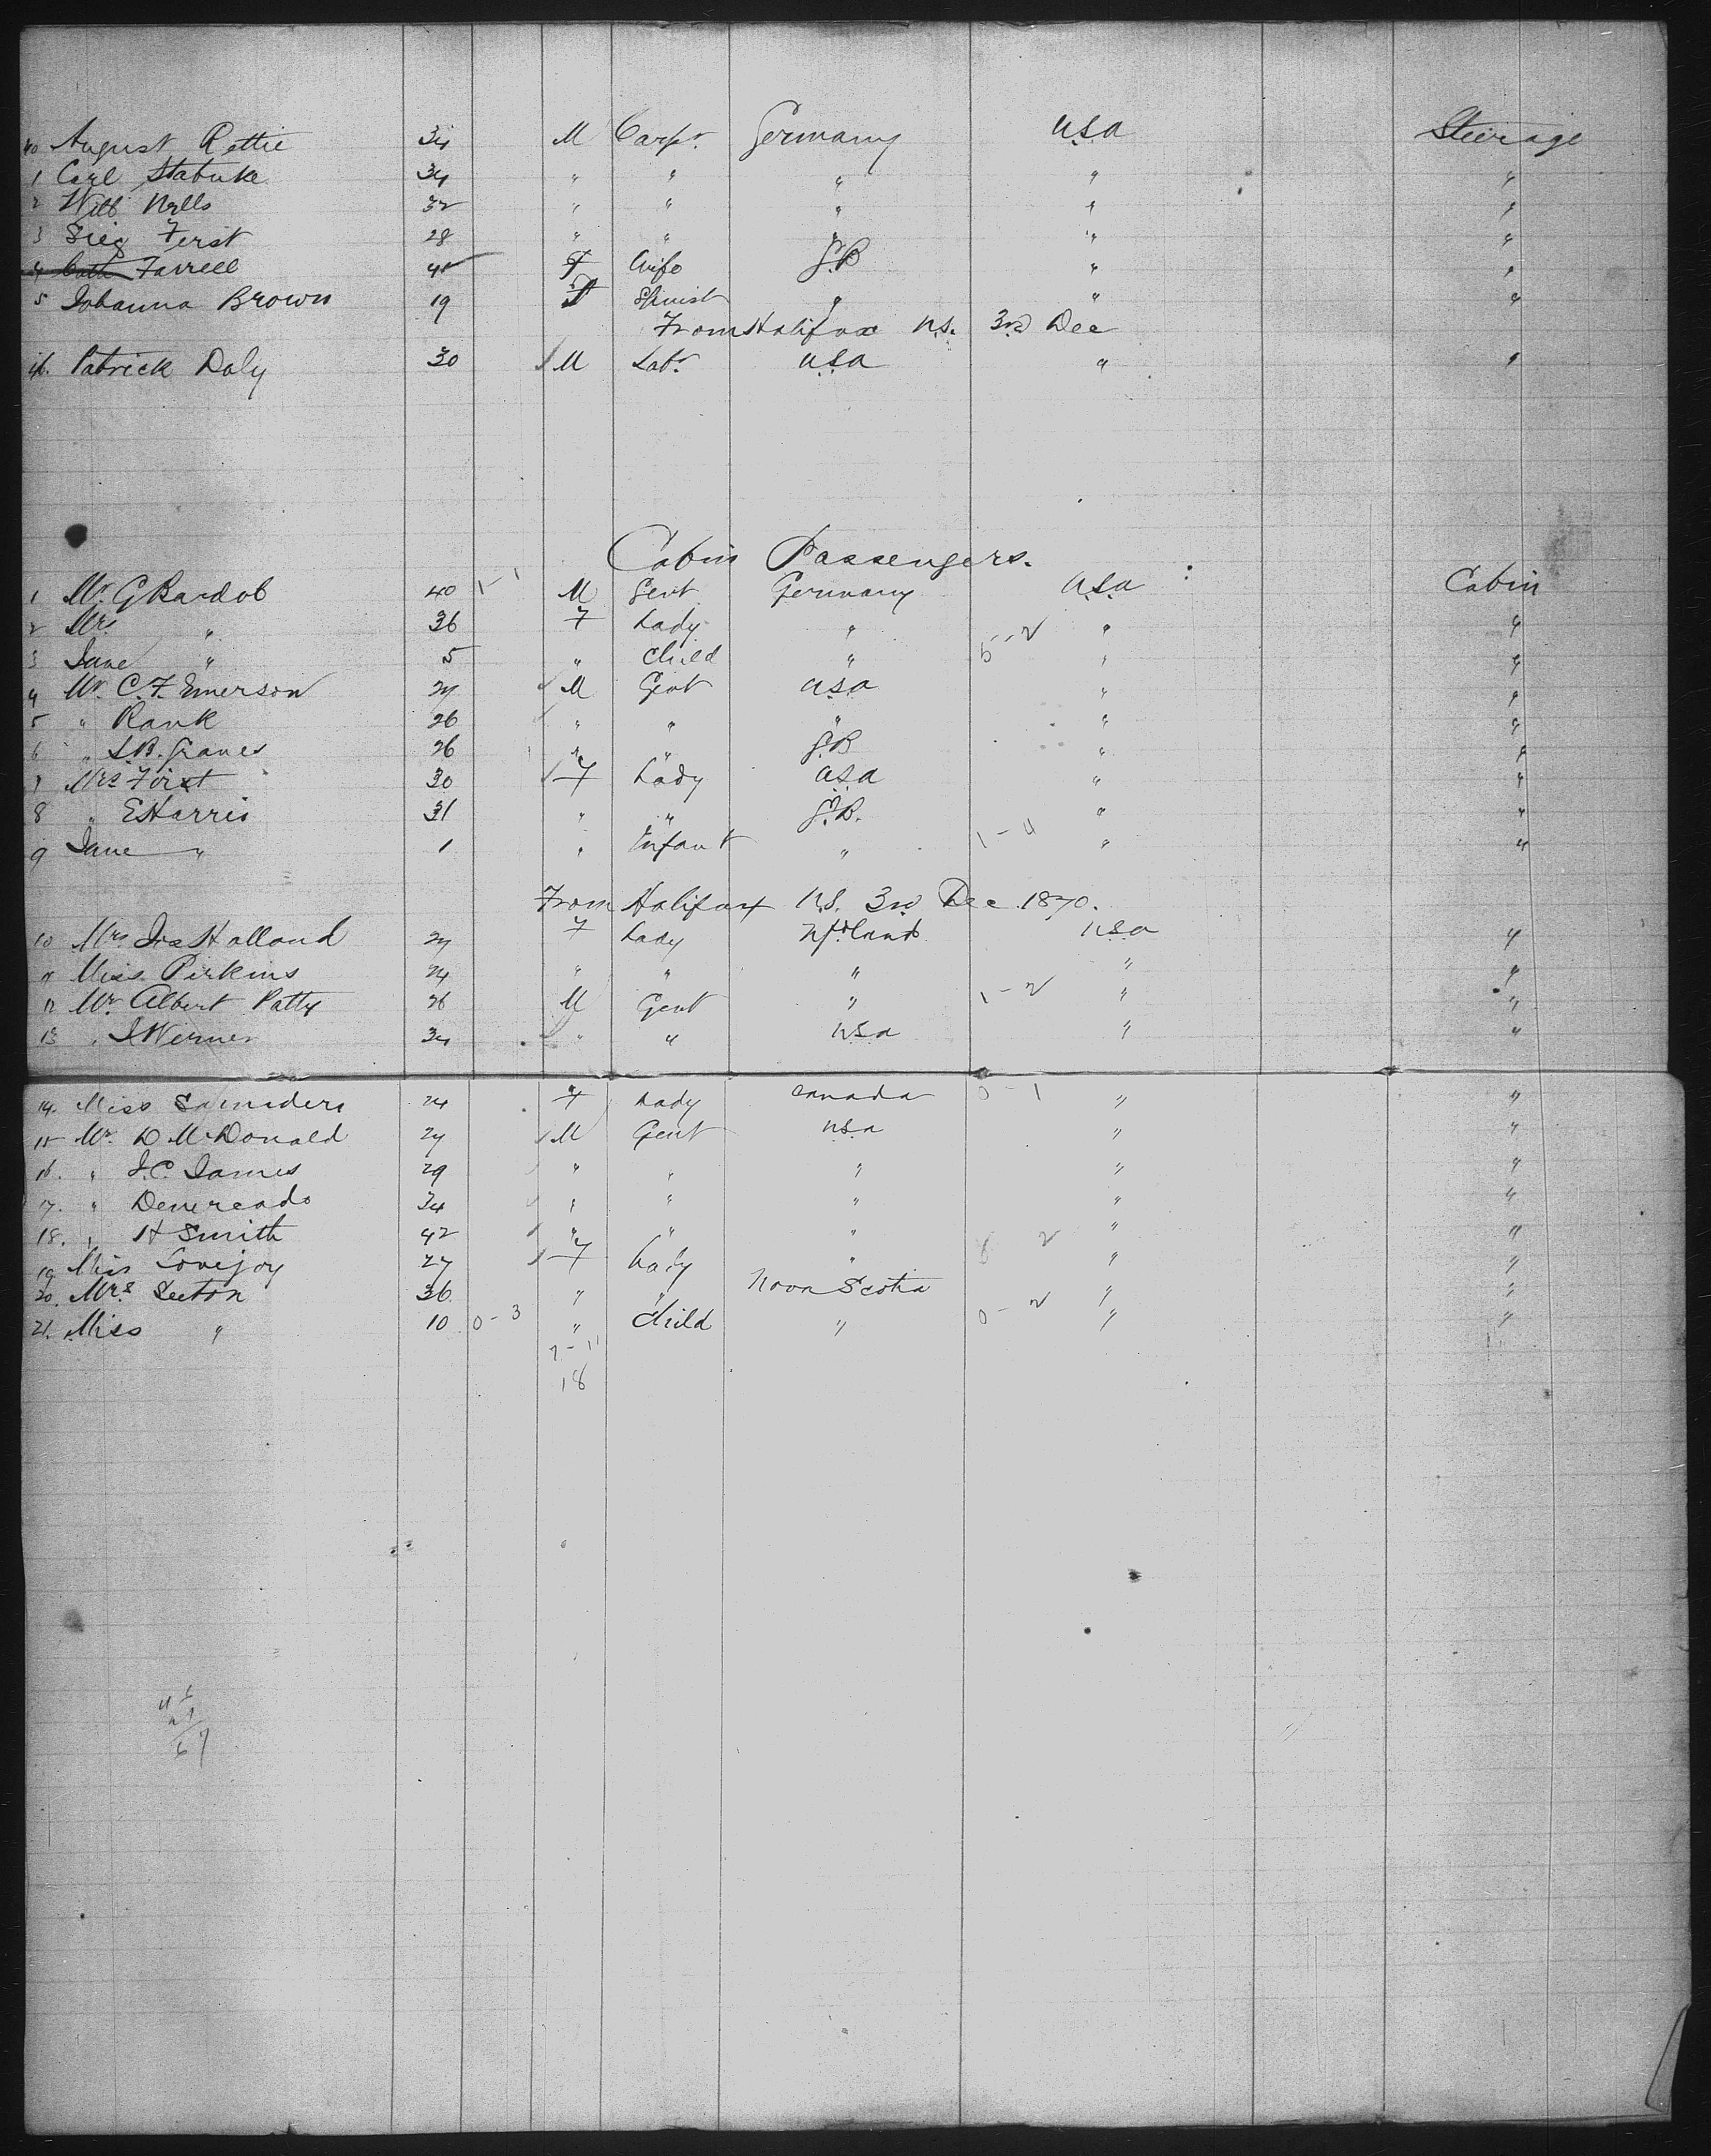 40 August Rettie 34 M Carpr. Germany U.S.A Steerage
1 Carl Stabuke 34 " " " " "
2 Will Nells 32 " " " " "
3 Sieg Ferst 28 " " " " "
4 Cath Farrell 45 F Wife G.B " "
5 Johanna Brown 19 " Spinist " " "
From Halifax N.S. 3rd Dec
46. Patrick Daly 30 M Labr. U.S.A " "
Cabin Passengers.
1 Mr. G Bardob 40 1-1 M Gent Germany U.S.A Cabin
2 Mrs. " 36 F Lady " 5-2 " "
3 Jane " 5 " Child " " "
4 Mr. C. F. Emerson 27 M Gent U.S.A " "
5 " Rank 26 " " " " "
6 " S.B. Graves 26 " " G.B " "
7 Mrs First 30 F Lady U.S.A " "
8 " E Harris 31 " " G.B. " "
9 Jane " 1 " Infant " 1-4 " "
From Halifax N.S. 3rd Dec 1870.
10 Mrs Jas Halland 27 F Lady Nfdland U.S.A "
11 Miss Perkins 24 " " " " "
12 Mr. Albert Patty 26 M Gent " 1-2 " "
13 " J Werner 34 " " U.S.A " "
14. Miss Saunders 24 F Lady Canada 0-1 " "
15 Mr. D McDonald 27 M Gent U.S.A " "
16. " J. C. James 29 " " " " "
17. " Devereado 34 " " " " "
18. " H Smith 42 " " " " "
19 Miss Lovejoy 27 F Lady " 8 2 " "
20. Mrs. Seeton 36 " " Nova Scotia " "
21. Miss " 10 0-3 " Child " 0-2 " "
7-11
18
46
21
67